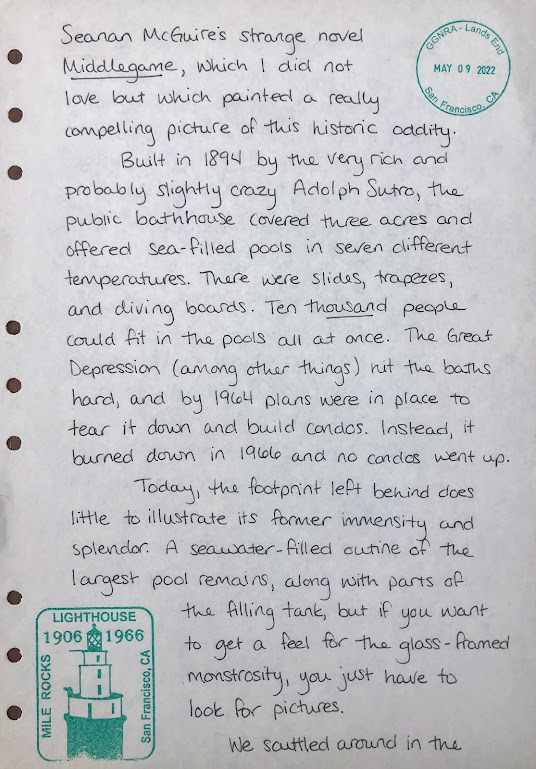 Seanan McGuire's strange novel
Middlegame, which I did not
love but which painted a really
compelling picture of this historic oddity.
GGNRA - Lands End
MAY 09 2022
San Francisco, CA
Built in 1894 by the very rich and
probably slightly crazy Adolph Sutro, the
public bathhouse covered three acres and
offered sea-filled pools in seven different
temperatures. There were slides, trapezes,
and diving boards. Ten thousand people
could fit in the pools all at once. The Great
Depression (among other things) hit the baths
hard, and by 1964 plans were in place to
tear it down and build condos. Instead, it
burned down in 1966 and no condos went up.
Today, the footprint left behind does
little to illustrate its former immensity and
splendor. A seawater-filled outine of the
largest pool remains, along with parts of
the filling tank, but if you want
to get a feel for the glass-framed
monstrosity, you just have to
look for pictures.
We scuttled around in the
LIGHTHOUSE
1906 1966
MILE ROCKS
San Francisco, CA